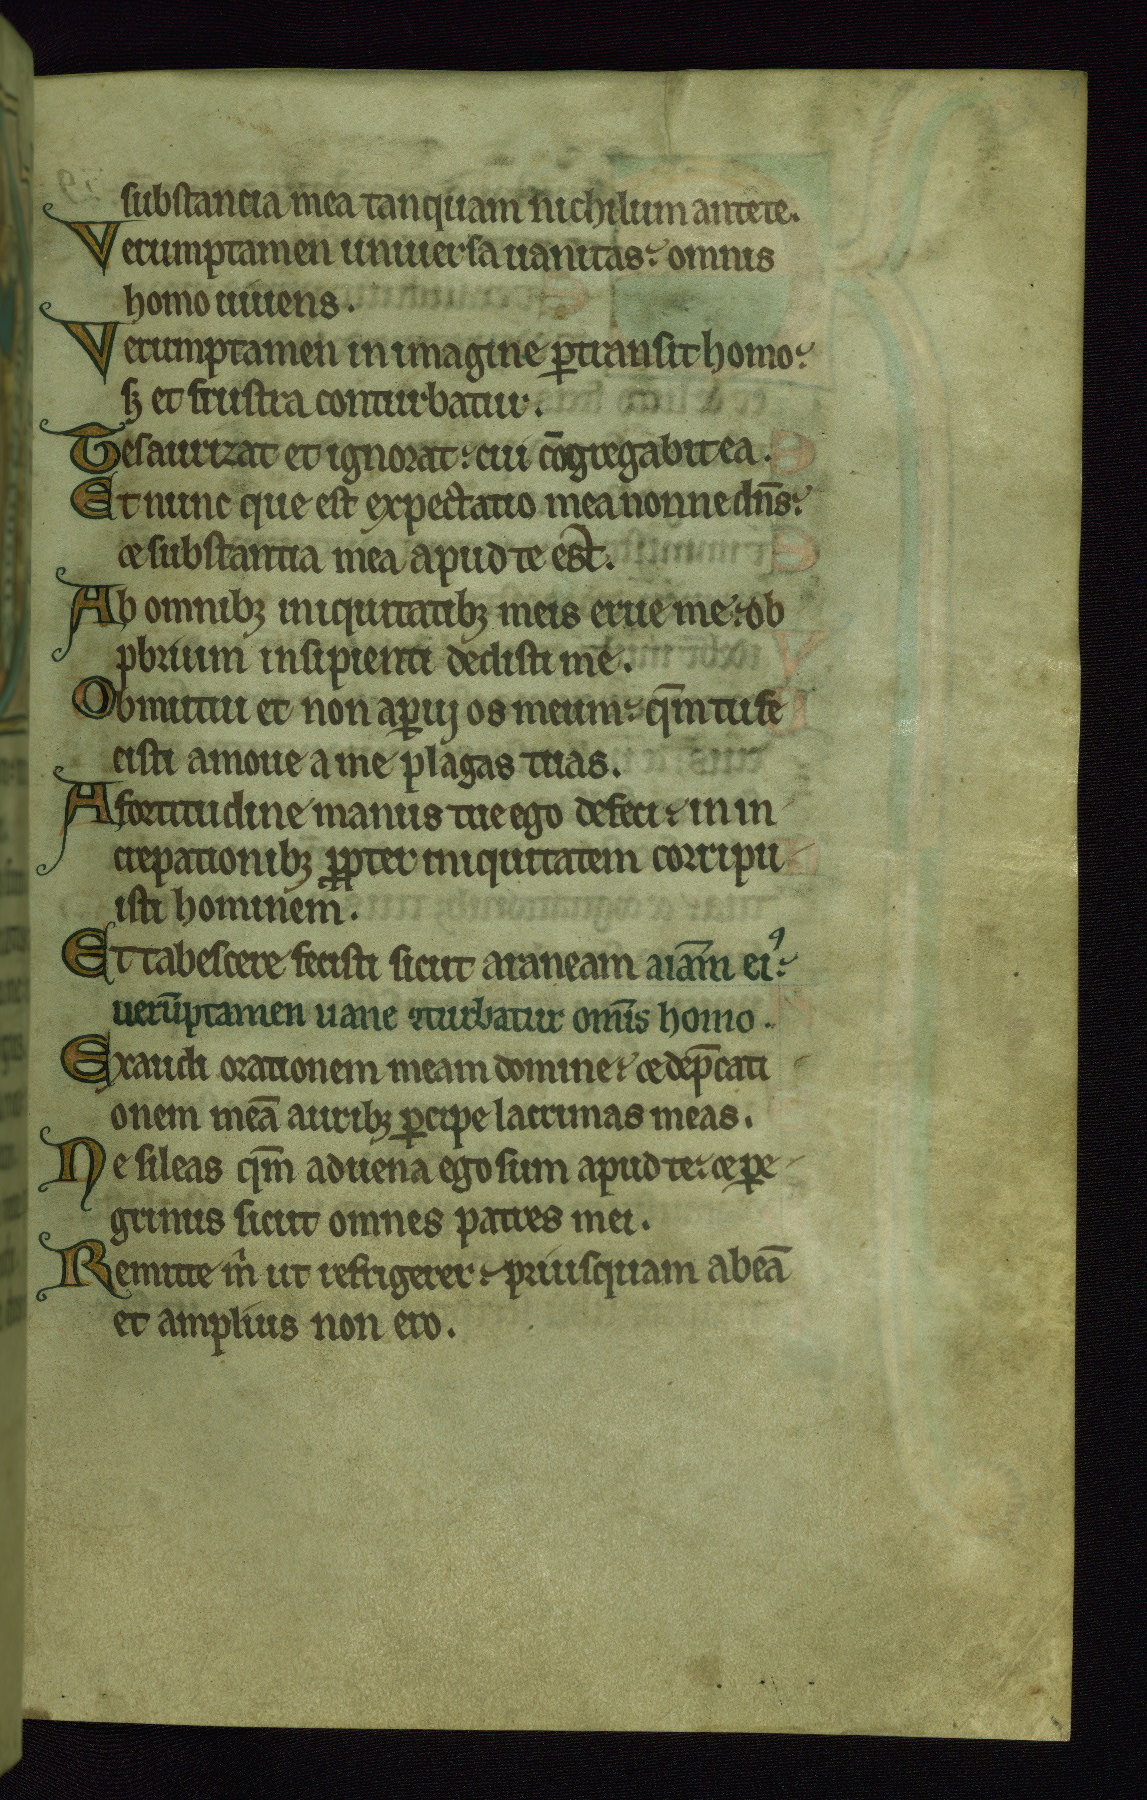 substancia mea tanquam nichilum ante te.
Verumptamen uniuersa uanitas: omnis
homo uiuens.
Verumptamen in imagine ꝑtransit homo:
sꝫ et frustra conturbatur.
Tesaurizat et ignorat: cui cōgregabit ea.
Et nunc que est expectatio mea nonne dn̄s:
et substantia mea apud te est.
Ab omnibꝫ iniquitatibꝫ meis erue me: ob
ꝓbrium insipienti dedisti me.
Obmutui et non aꝑuij os meum: qm̄ tu fe
cisti amoue a me plagas tuas.
A fortitudine manus tue ego defeci: in in
crepationibꝫ ꝓpter iniquitatem corripu
isti hominem.
Et tabescere fecisti sicut araneam aīam eiꝰ:
uerūptamen uane ꝯturbatur om̄is homo.
Exaudi orationem meam domine: et dep̄cati
onem meā auribꝫ ꝑcipe lacrimas meas.
Ne sileas qm̄ aduena ego sum apud te: et ꝑe
grinus sicut omnes patres mei.
Remitte m̄ ut refrigerer: priusquam abeā
et amplius non ero.